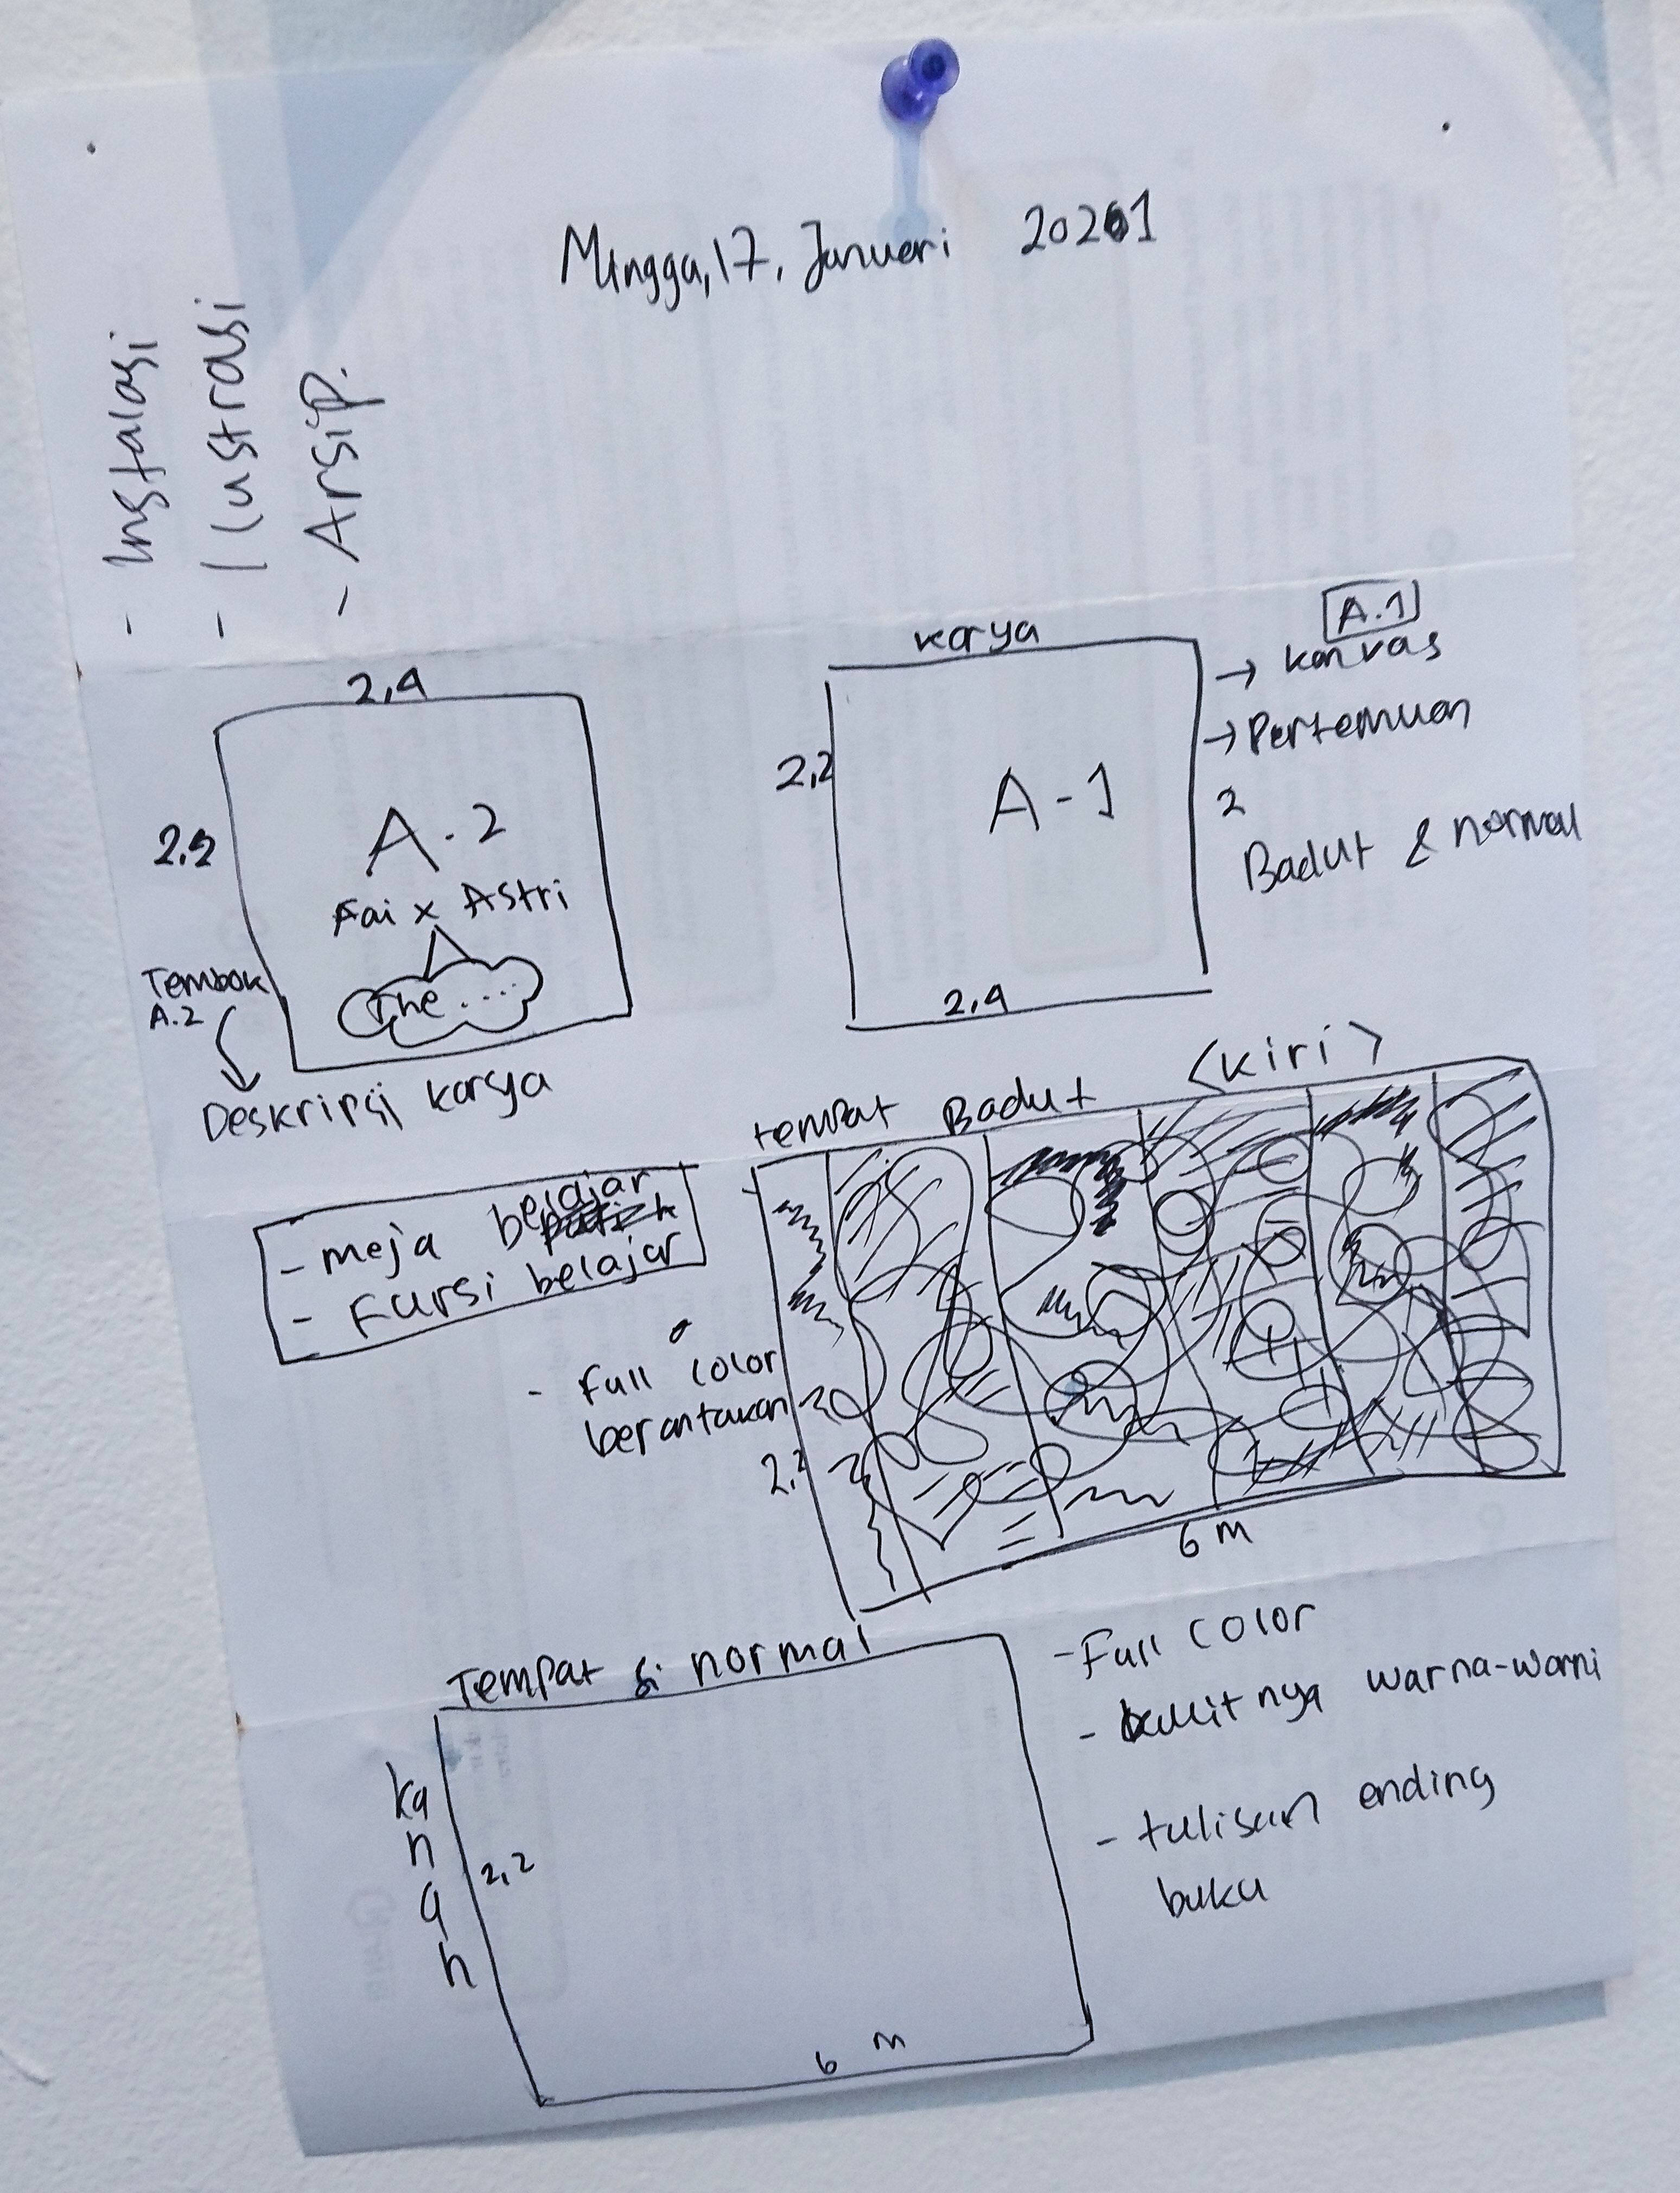 Mingga, 17, Januari 2021
- Instalasi
- Ilustrasi
- Arsip.
2,4
2,2
A.2
Fai x Astri
The....
Tembok
A.2
Deskripsi karya
karya
2,2
A-1
2,4
A.1
→ kanvas
→ Pertemuan
2
Badut & normal
- meja belajar
- kursi belajar
tempat Badut <kiri>
- full color
berantakan
2,2
6 m
Tempat si normal
kanan
2,2
6 m
- Full color
- bukitnya warna-warni
- tulisan ending
buku